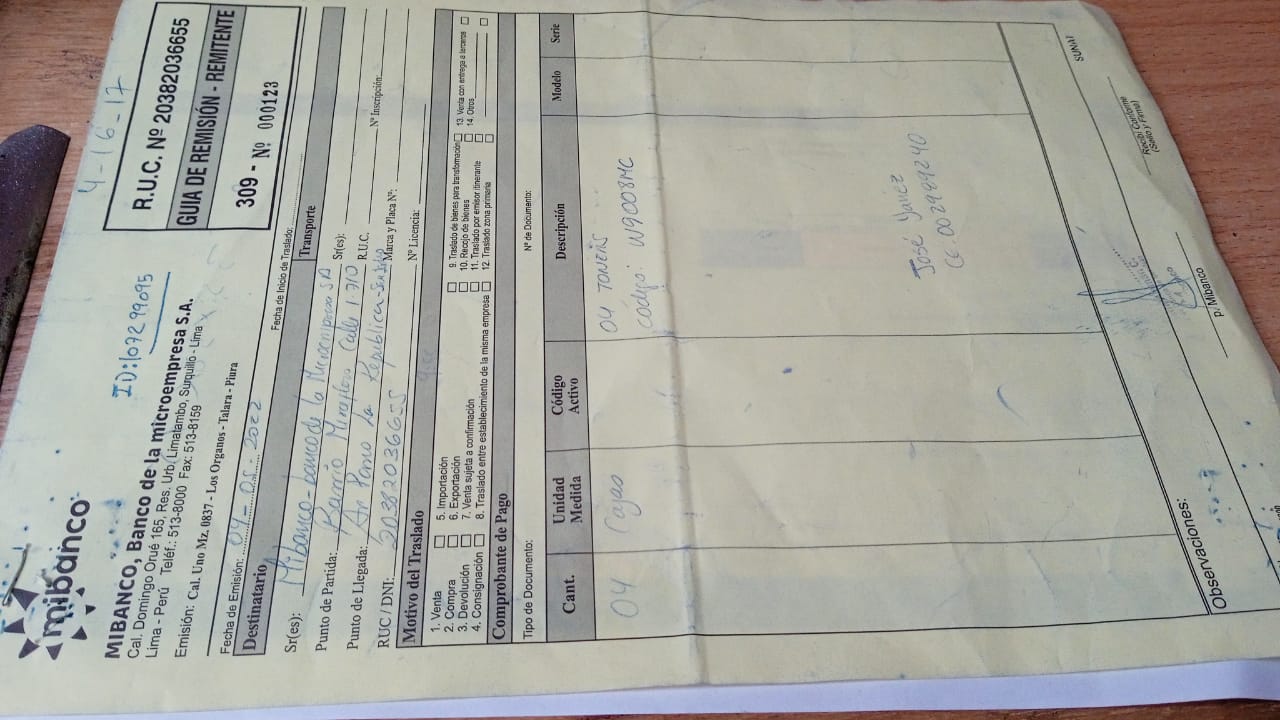 mibanco
MIBANCO, Banco de la microempresa S.A.
Cal. Domingo Orué 165, Res. Urb. Limatambo, Surquillo - Lima
Lima - Perú Teléf.: 513-8000 Fax: 513-8159
Emisión: Cal. Uno Mz. 0837 - Los Organos - Talara - Piura
ID:107299095
4-16-17
R.U.C. Nº 20382036655
GUIA DE REMISIÓN - REMITENTE
309 - Nº 000123
Fecha de Emisión: 04-05-2022
Fecha de Inicio de Traslado:
Destinatario
Transporte
Sr(es): Mibanco-banco de la Microempresa SA
Sr(es):
Punto de Partida: Barrio Miraflores Calle 1 710
R.U.C.
Nº Inscripción:
Punto de Llegada: Av Paseo La Republica-Surquillo
Marca y Placa Nº:
RUC / DNI: 20382036655
Nº Licencia:
Motivo del Traslado
1. Venta
2. Compra
3. Devolución
4. Consignación
5. Importación
6. Exportación
7. Venta sujeta a confirmación
8. Traslado entre establecimiento de la misma empresa
9. Traslado de bienes para transformación
10. Recojo de bienes
11. Traslado por emisor itinerante
12. Traslado zona primaria
13. Venta con entrega a terceros
14. Otros
Comprobante de Pago
Tipo de Documento:
Nº de Documento:
Cant.
Unidad Medida
Código Activo
Descripción
Modelo
Serie
04 Cajas 04 TONERS
CÓDIGO: W9008MC
José Yañez
CE. 002999240
Observaciones:
SUNAT
p. Mibanco
Recibí Conforme
(Sello y Firma)